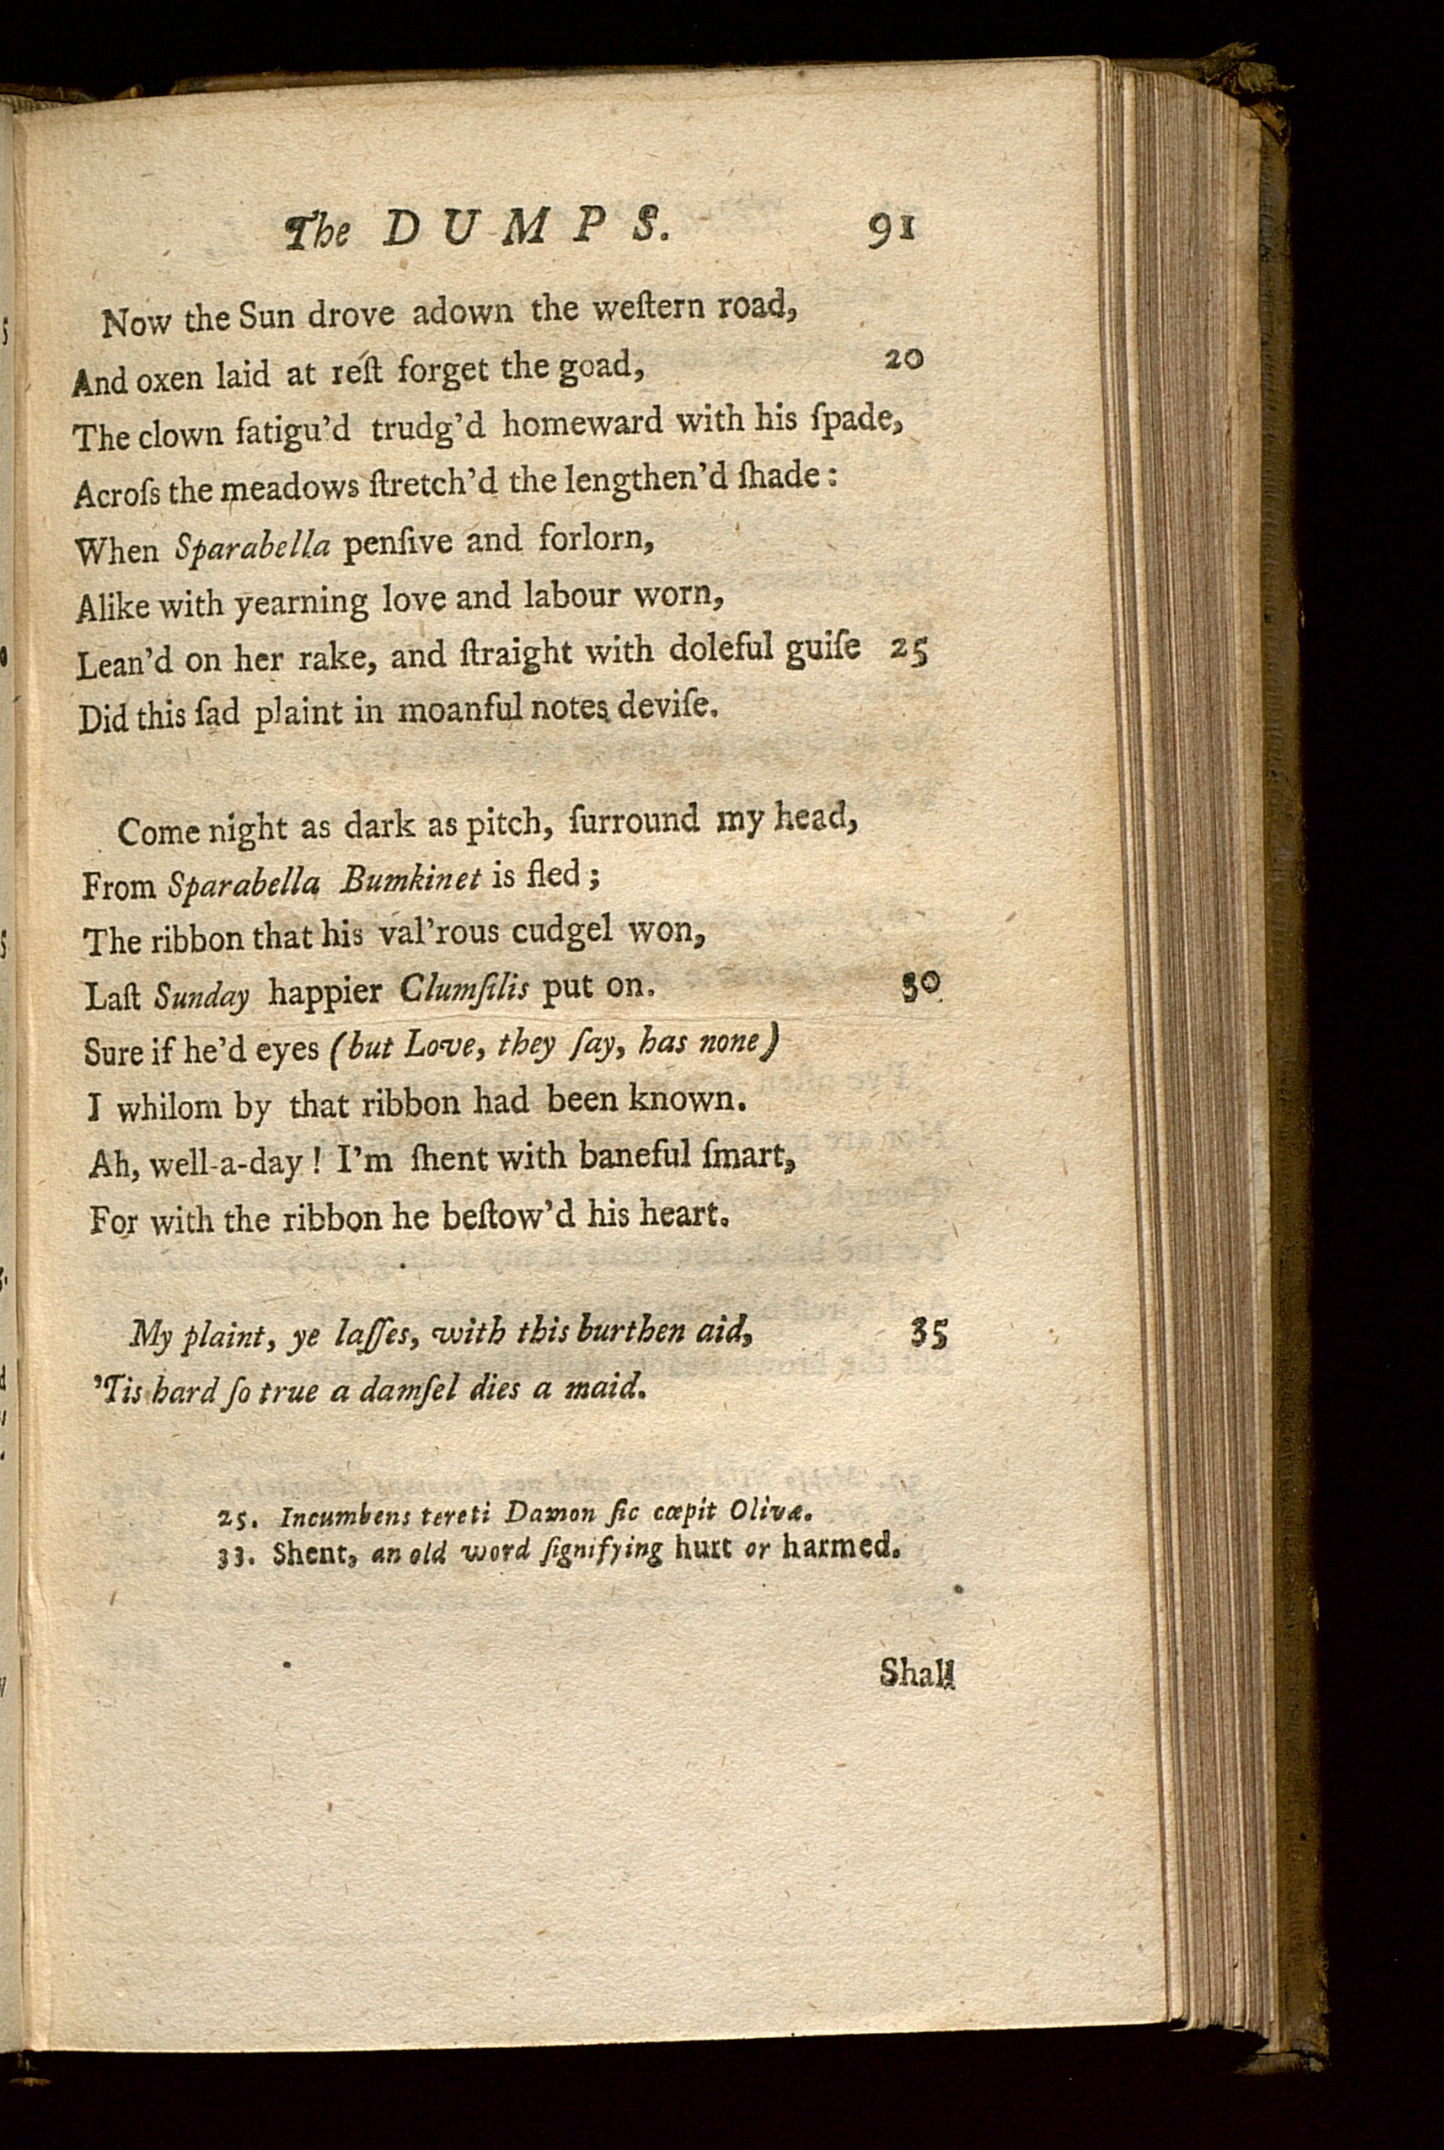 The DUMPS. 91
Now the Sun drove adown the weſtern road,
And oxen laid at reſt forget the goad, 20
The clown fatigu'd trudg'd homeward with his ſpade,
Acroſs the meadows ſtretch'd the lengthen'd ſhade:
When Sparabella penſive and forlorn,
Alike with yearning love and labour worn,
Lean'd on her rake, and ſtraight with doleful guiſe 25
Did this ſad plaint in moanful notes deviſe.
Come night as dark as pitch, ſurround my head,
From Sparabella Bumkinet is fled;
The ribbon that his val'rous cudgel won,
Laſt Sunday happier Clumſilis put on. 30
Sure if he'd eyes (but Love, they ſay, has none)
I whilom by that ribbon had been known.
Ah, well-a-day! I'm ſhent with baneful ſmart,
For with the ribbon he beſtow'd his heart.
My plaint, ye laſſes, with this burthen aid, 35
'Tis hard ſo true a damſel dies a maid.
25. Incumbens tereti Damon ſic cœpit Olivæ.
33. Shent, an old word ſignifying hurt or harmed.
Shall